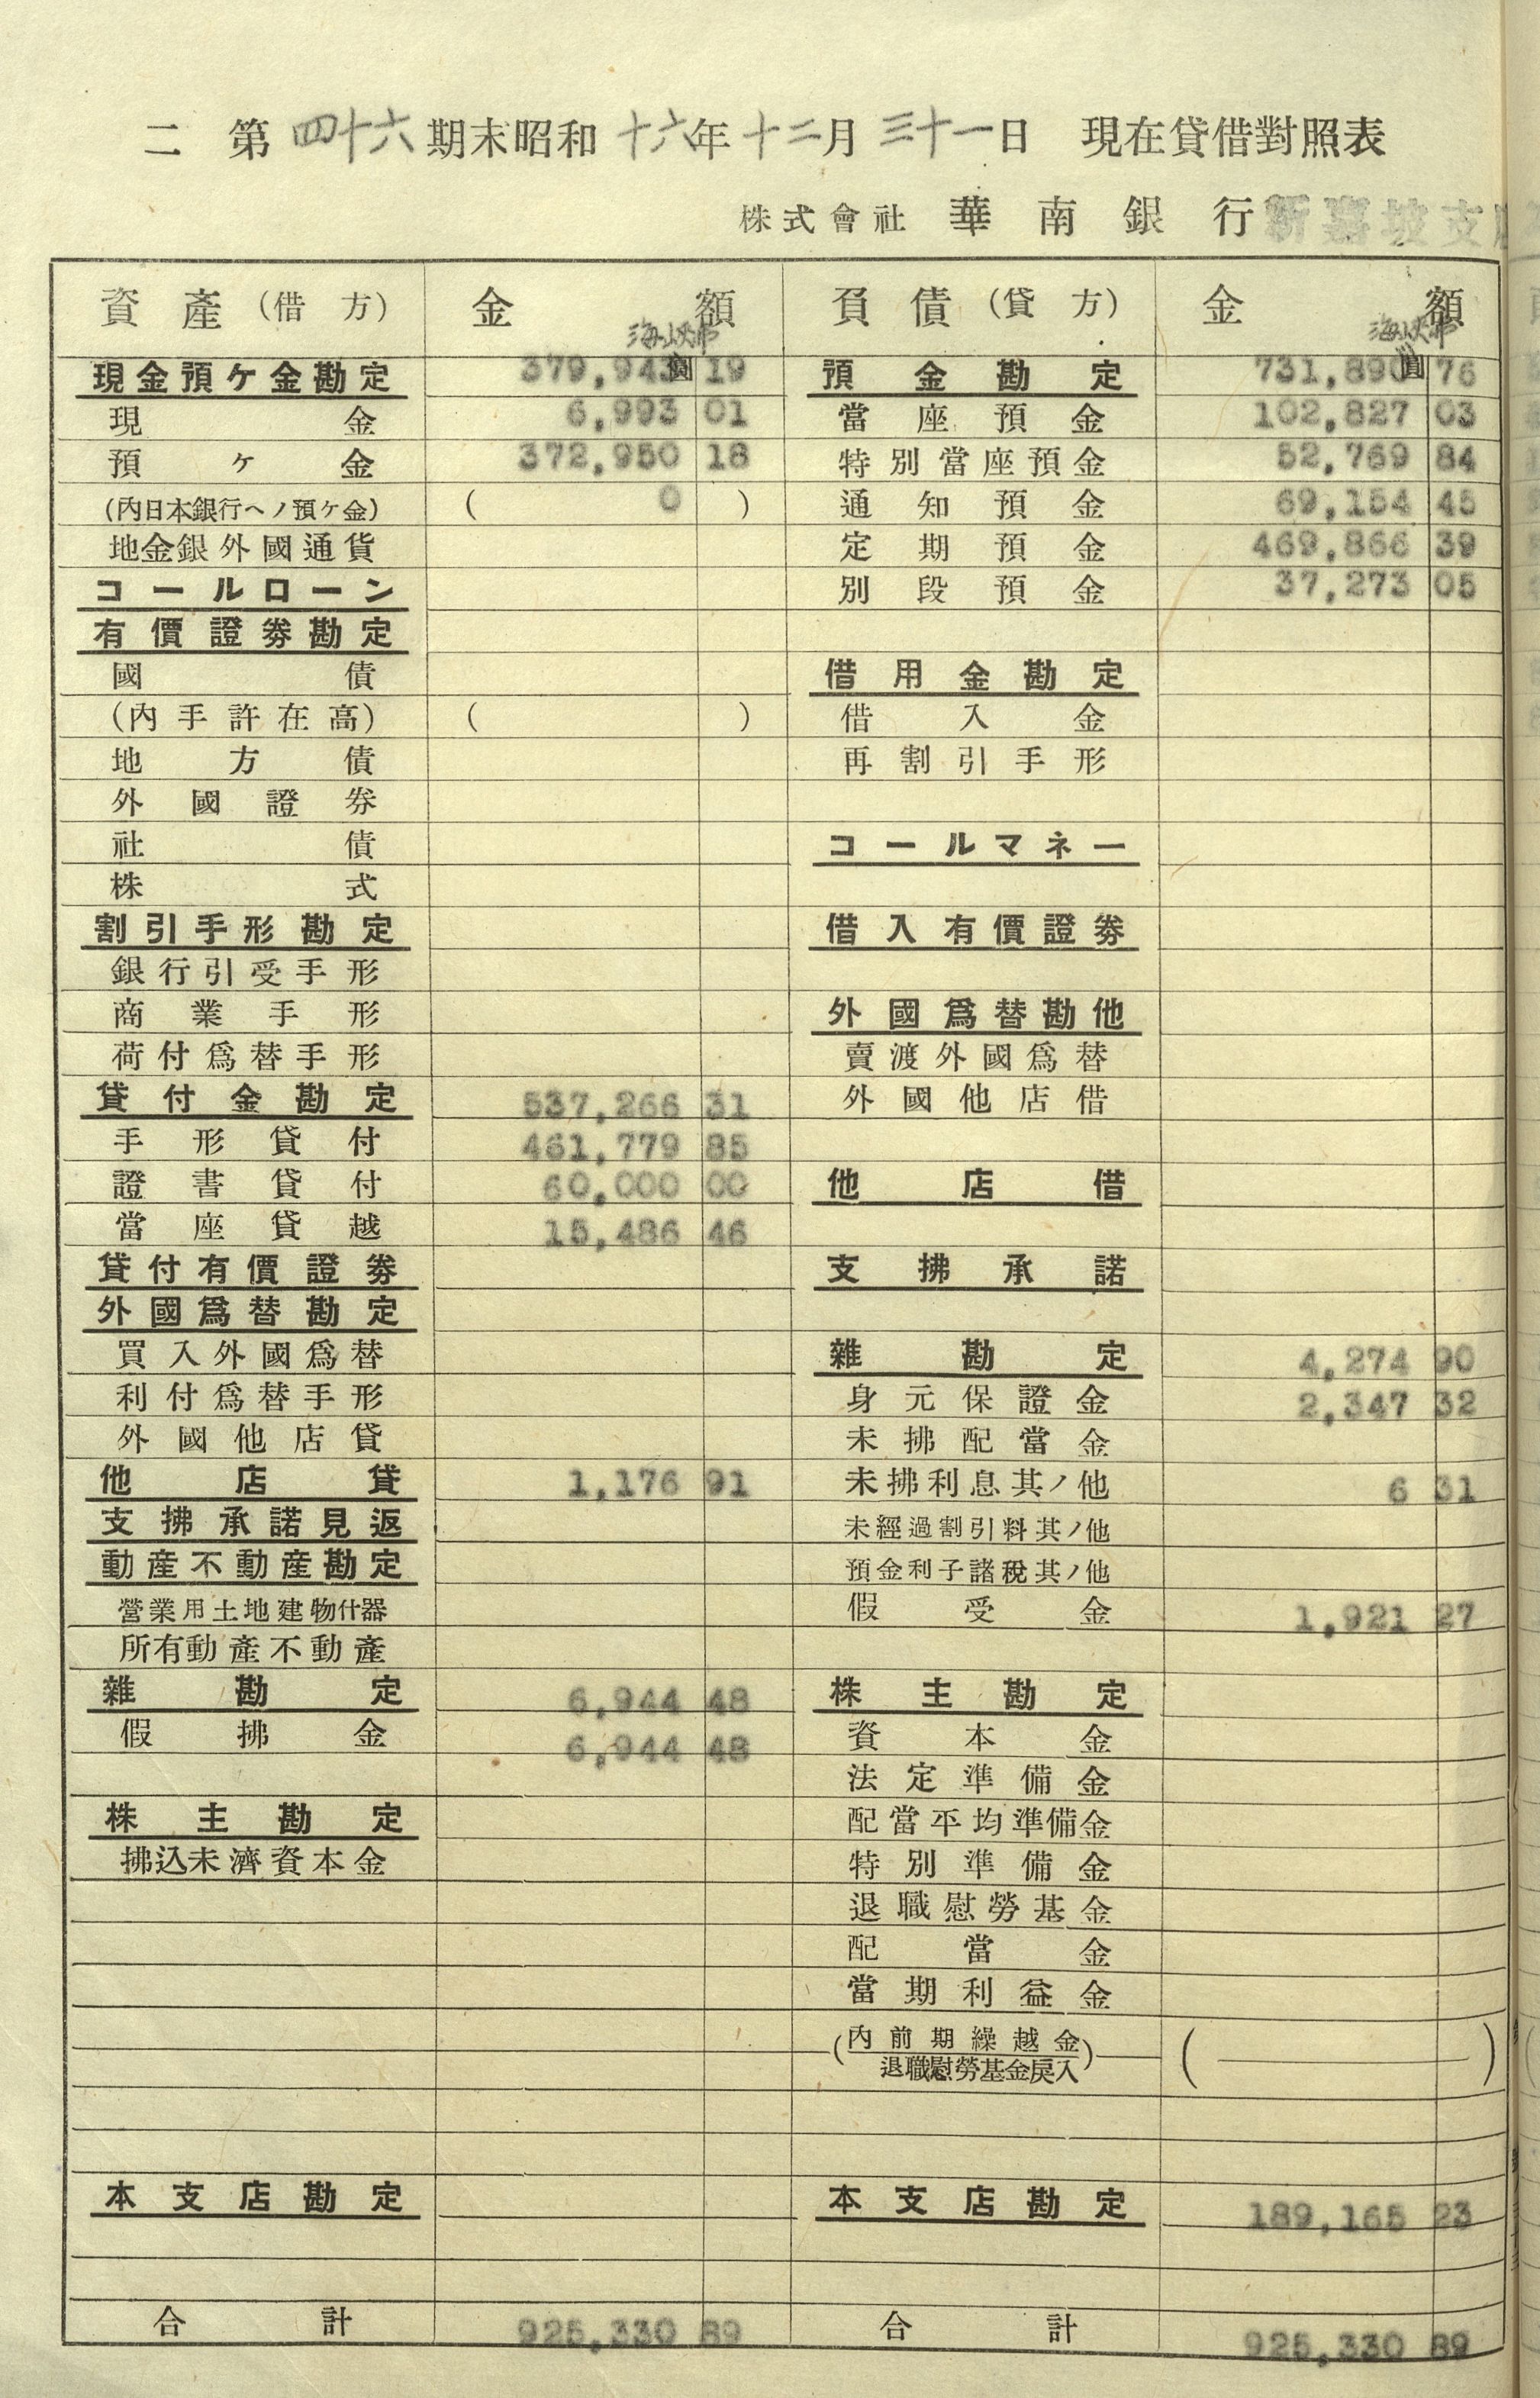 二 第四十六期末昭和十六年十二月三十一日 現在貸借對照表
株式會社 華南銀行新嘉坡支店
資產(借方) 金額 負債(貸方) 金額
海峽弗 海峽弗
現金預ケ金勘定 379,943 圓 19 預金勘定 731,890 圓 76
現金 6,993 01 當座預金 102,827 03
預ケ金 372,950 18 特別當座預金 52,769 84
(內日本銀行ヘノ預ケ金) ( 0 ) 通知預金 69,154 45
地金銀外國通貨 定期預金 469,866 39
コールローン 別段預金 37,273 05
有價證劵勘定
國債 借用金勘定
(內手許在高) ( ) 借入金
地方債 再割引手形
外國證券
社債 コールマネー
株式
割引手形勘定 借入有價證劵
銀行引受手形
商業手形 外國爲替勘他
荷付爲替手形 賣渡外國爲替
貸付金勘定 537,266 31 外國他店借
手形貸付 461,779 85
證書貸付 60,000 00 他店借
當座貸越 15,486 46
貸付有價證劵 支拂承諾
外國爲替勘定
買入外國爲替 雜勘定 4,274 90
利付爲替手形 身元保證金 2,347 32
外國他店貸 未拂配當金
他店貸 1,176 91 未拂利息其ノ他 6 31
支拂承諾見返 未經過割引料其ノ他
動産不動産勘定 預金利子諸稅其ノ他
營業用土地建物什器 假受金 1,921 27
所有動產不動產
雜勘定 6,944 48 株主勘定
假拂金 6,944 48 資本金
法定準備金
株主勘定 配當平均準備金
拂込未濟資本金 特別準備金
退職慰勞基金
配當金
當期利益金
(內前期繰越金 ( )
退職慰勞基金戾入)
本支店勘定 本支店勘定 189,165 23
合計 925,330 89 合計 925,330 89